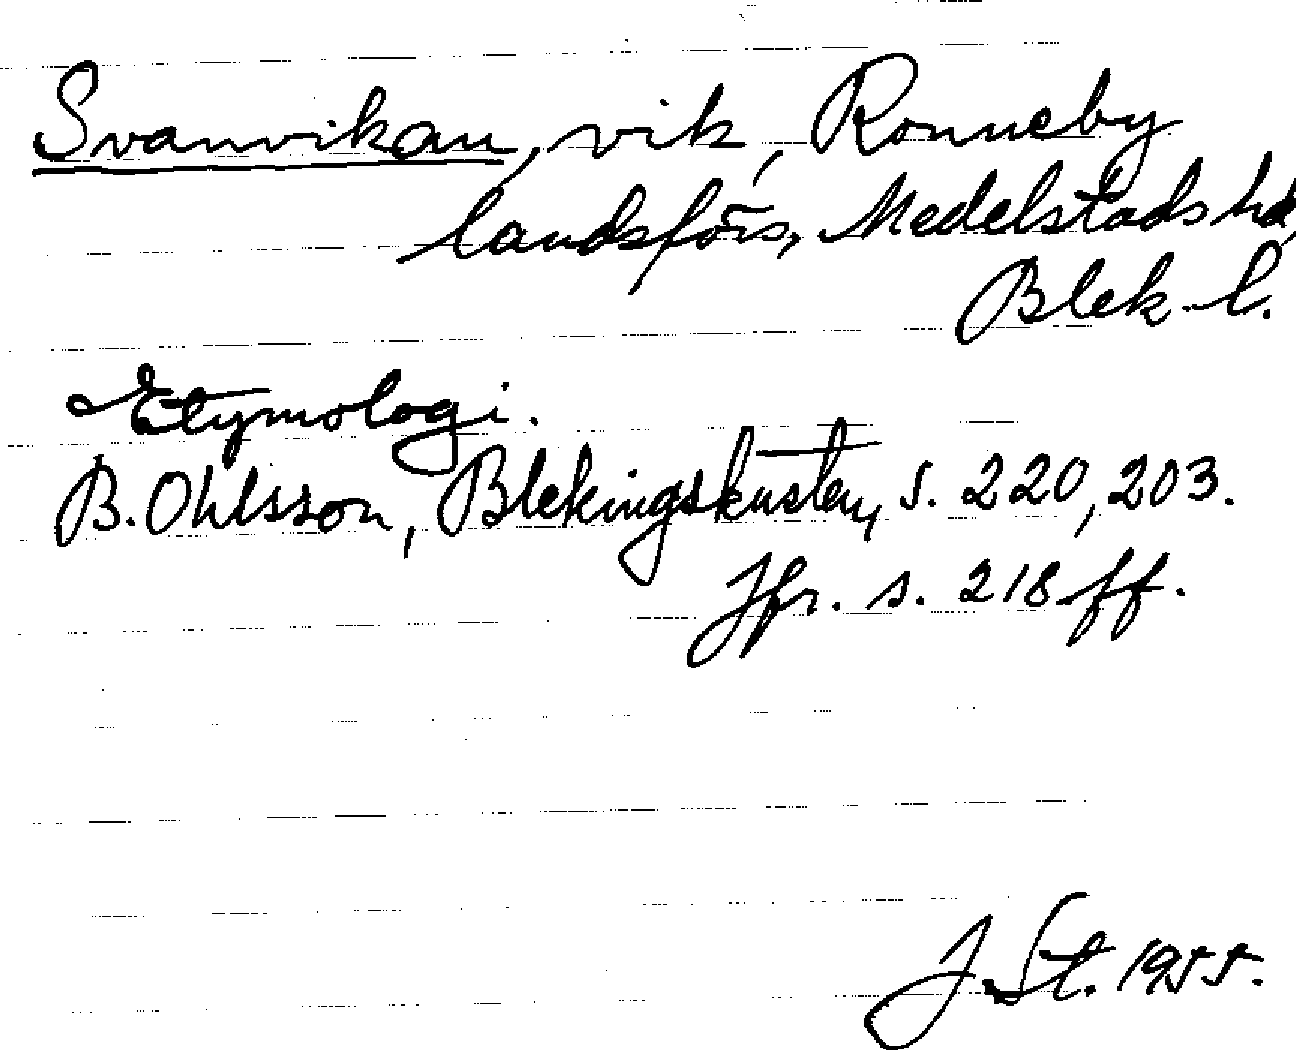 Svanvikan, vik, Ronneby
landsförs, Medelstads hd,
Blek. l.
Etymologi.
B. Ohlsson, Blekingskusten, s. 220, 203.
Jfr. s. 218 ff.
J. St. 1955.